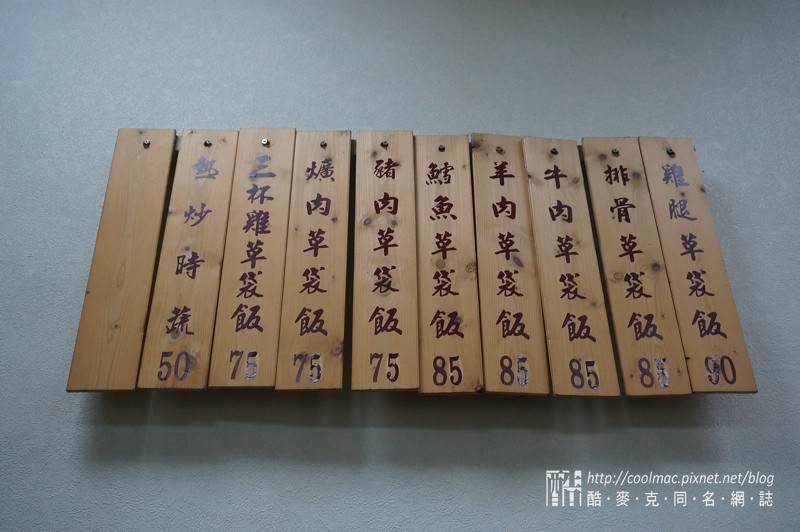 雞腿草袋飯 90
排骨草袋飯 85
牛肉草袋飯 85
羊肉草袋飯 85
鱈魚草袋飯 85
豬肉草袋飯 75
爌肉草袋飯 75
三杯雞草袋飯 75
熱炒時蔬 50
酷 http://coolmac.pixnet.net/blog
酷・麥・克・同・名・網・誌